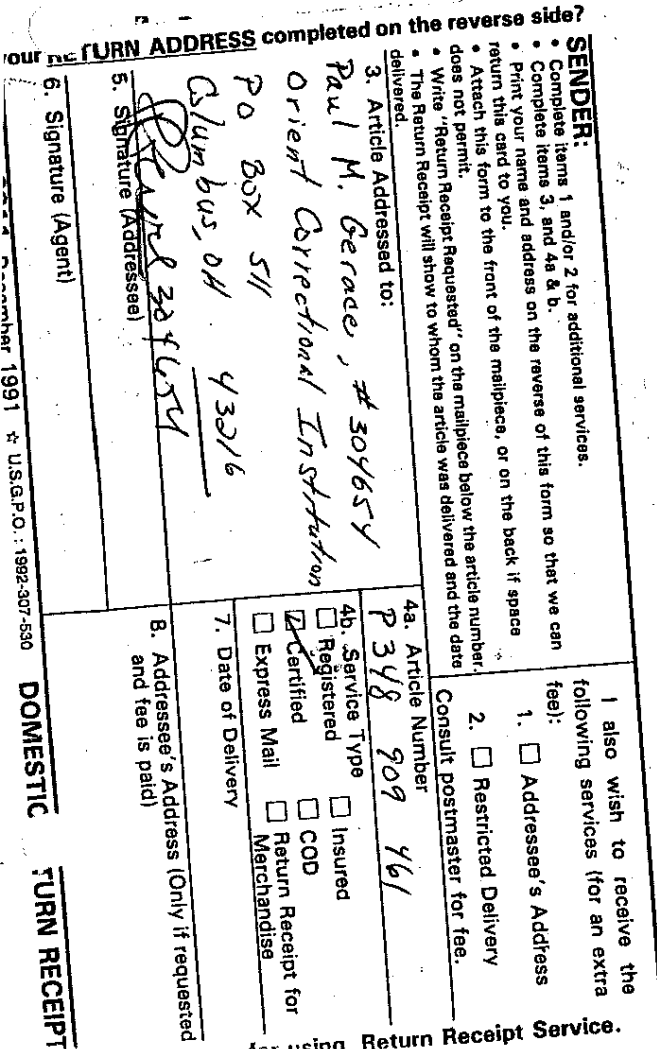 RETURN ADDRESS completed on the reverse side?
SENDER:
• Complete items 1 and/or 2 for additional services.
• Complete items 3, and 4a & b.
• Print your name and address on the reverse of this form so that we can
return this card to you.
• Attach this form to the front of the mailpiece, or on the back if space
does not permit.
• Write "Return Receipt Requested" on the mailpiece below the article number.
• The Return Receipt will show to whom the article was delivered and the date
delivered.
I also wish to receive the
following services (for an extra
fee):
1. ☐ Addressee's Address
2. ☐ Restricted Delivery
Consult postmaster for fee.
3. Article Addressed to:
Paul M. Gerace, #304654
Orient Correctional Institution
PO Box 511
Columbus, OH 43216
4a. Article Number
P 348 909 461
4b. Service Type
☐ Registered ☐ Insured
☑ Certified ☐ COD
☐ Express Mail ☐ Return Receipt for
Merchandise
7. Date of Delivery
5. Signature (Addressee)
304654
8. Addressee's Address (Only if requested
and fee is paid)
6. Signature (Agent)
December 1991 ☆ U.S.G.P.O.: 1992-307-530 DOMESTIC TURN RECEIPT
using Return Receipt Service.